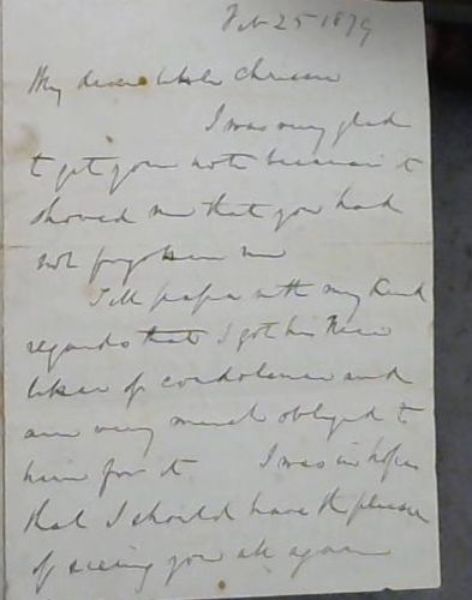 Feb 25 1879
My dear little Chrissie
I was very glad
to get your note because it
showed me that you had
not forgotten me
Tell papa with my kind
regards that I got his
letter of condolence and
am very much obliged to
him for it I was in hopes
that I should have the pleasure
of seeing you all again